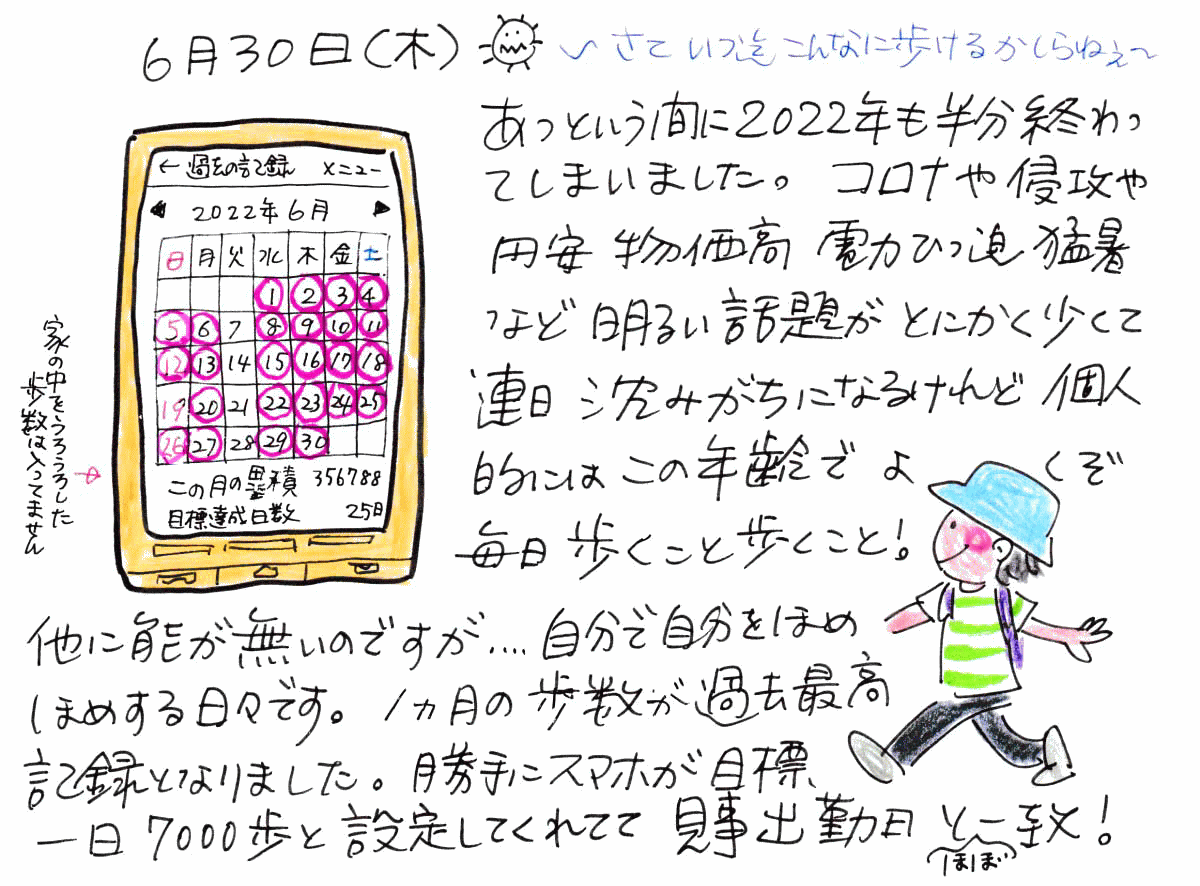 6月30日(木)
〜さていつまでこんなに歩けるかしらねぇ〜
あっという間に2022年も半分終わっ
てしまいました。コロナや侵攻や
円安 物価高 電力ひっ迫 猛暑
など 明るい話題がとにかく少くて
連日 沈みがちになるけれど 個人
的にはこの年齢で よくぞ
毎日 歩くこと歩くこと!
他に能が無いのですが....自分で自分をほめ
ほめする日々です。1ヵ月の歩数が過去最高
記録となりました。勝手にスマホが目標
一日7000歩と設定してくれてて 見事出勤日と一致!
(ほぼ)
← 過去の記録 メニュー
◀ 2022年6月 ▶
日 月 火 水 木 金 土
1 2 3 4
5 6 7 8 9 10 11
12 13 14 15 16 17 18
19 20 21 22 23 24 25
26 27 28 29 30
この月の累積 356788
目標達成日数 25日
家の中をうろうろした
歩数は入ってません